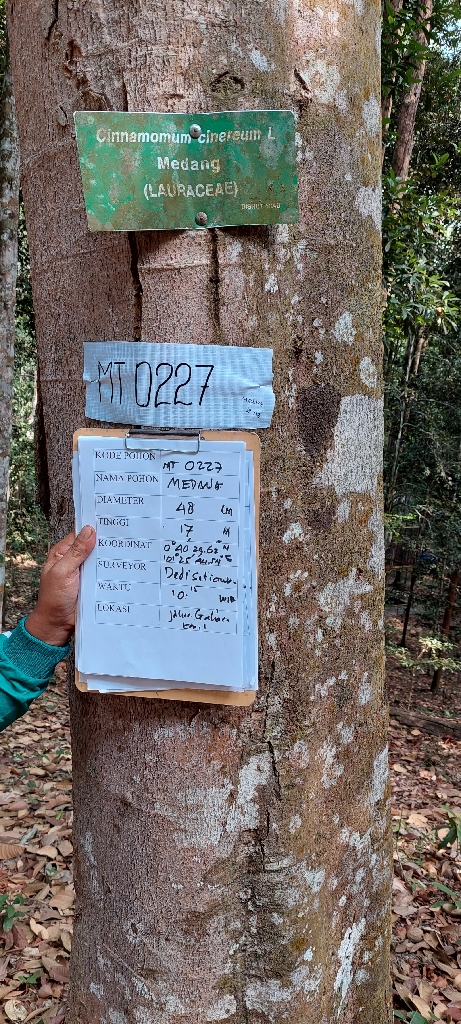 Cinnamomum cinereum L
Medang
(LAURACEAE)
MT 0227
KODE POHON MT 0227
NAMA POHON MEDANG
DIAMETER 48 CM
TINGGI 17 M
KOORDINAT 0° 40' 29.62" N
101° 25'
SURVEYOR Dedi
WAKTU 10.15 WIB
LOKASI Jalur Gaharu